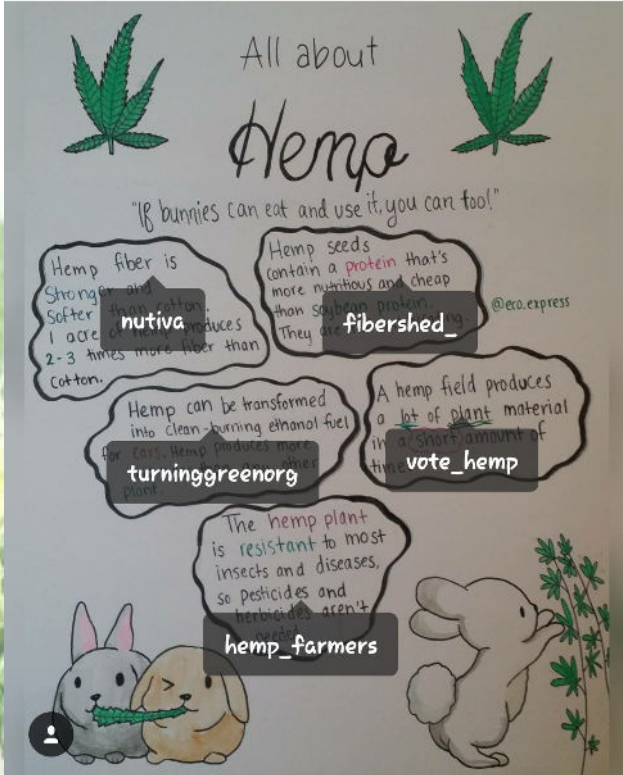 All about
Hemp
"If bunnies can eat and use it, you can too!"
Hemp fiber is
Stronger and
Softer than cotton.
1 acre of hemp produces
2-3 times more fiber than
cotton.
nutiva
Hemp seeds
contain a protein that's
more nutritious and cheap
than soybean protein.
They are
fibershed_
@eco.express
Hemp can be transformed
into clean-burning ethanol fuel
for cars. Hemp produces more
than any other
plant.
turninggreenorg
A hemp field produces
a lot of plant material
in a short amount of
time
vote_hemp
The hemp plant
is resistant to most
insects and diseases,
so pesticides and
herbicides aren't
needed
hemp_farmers